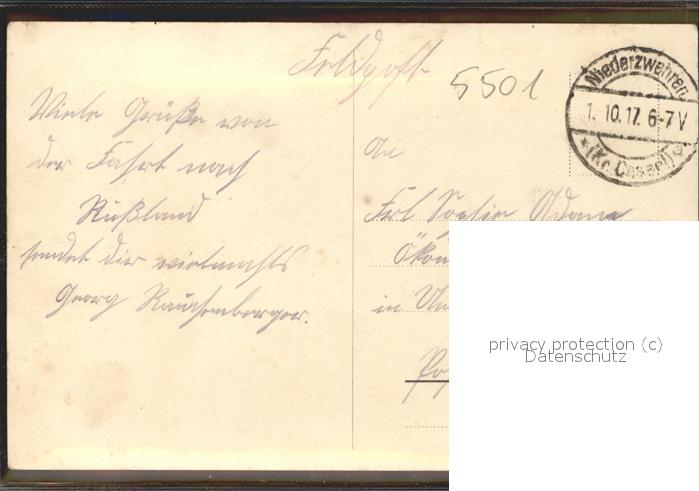 Feldpost
5501
Niederzwehren
1. 10. 17. 6-7 V
* (Kr. Cassel) a
Viele Grüße von
der Fahrt nach
Rußland
sendet dir vielmals
Georg Rauschenberger.
An
Frl Sofie Adam
Ökon
in Un
Pos
privacy protection (c)
Datenschutz